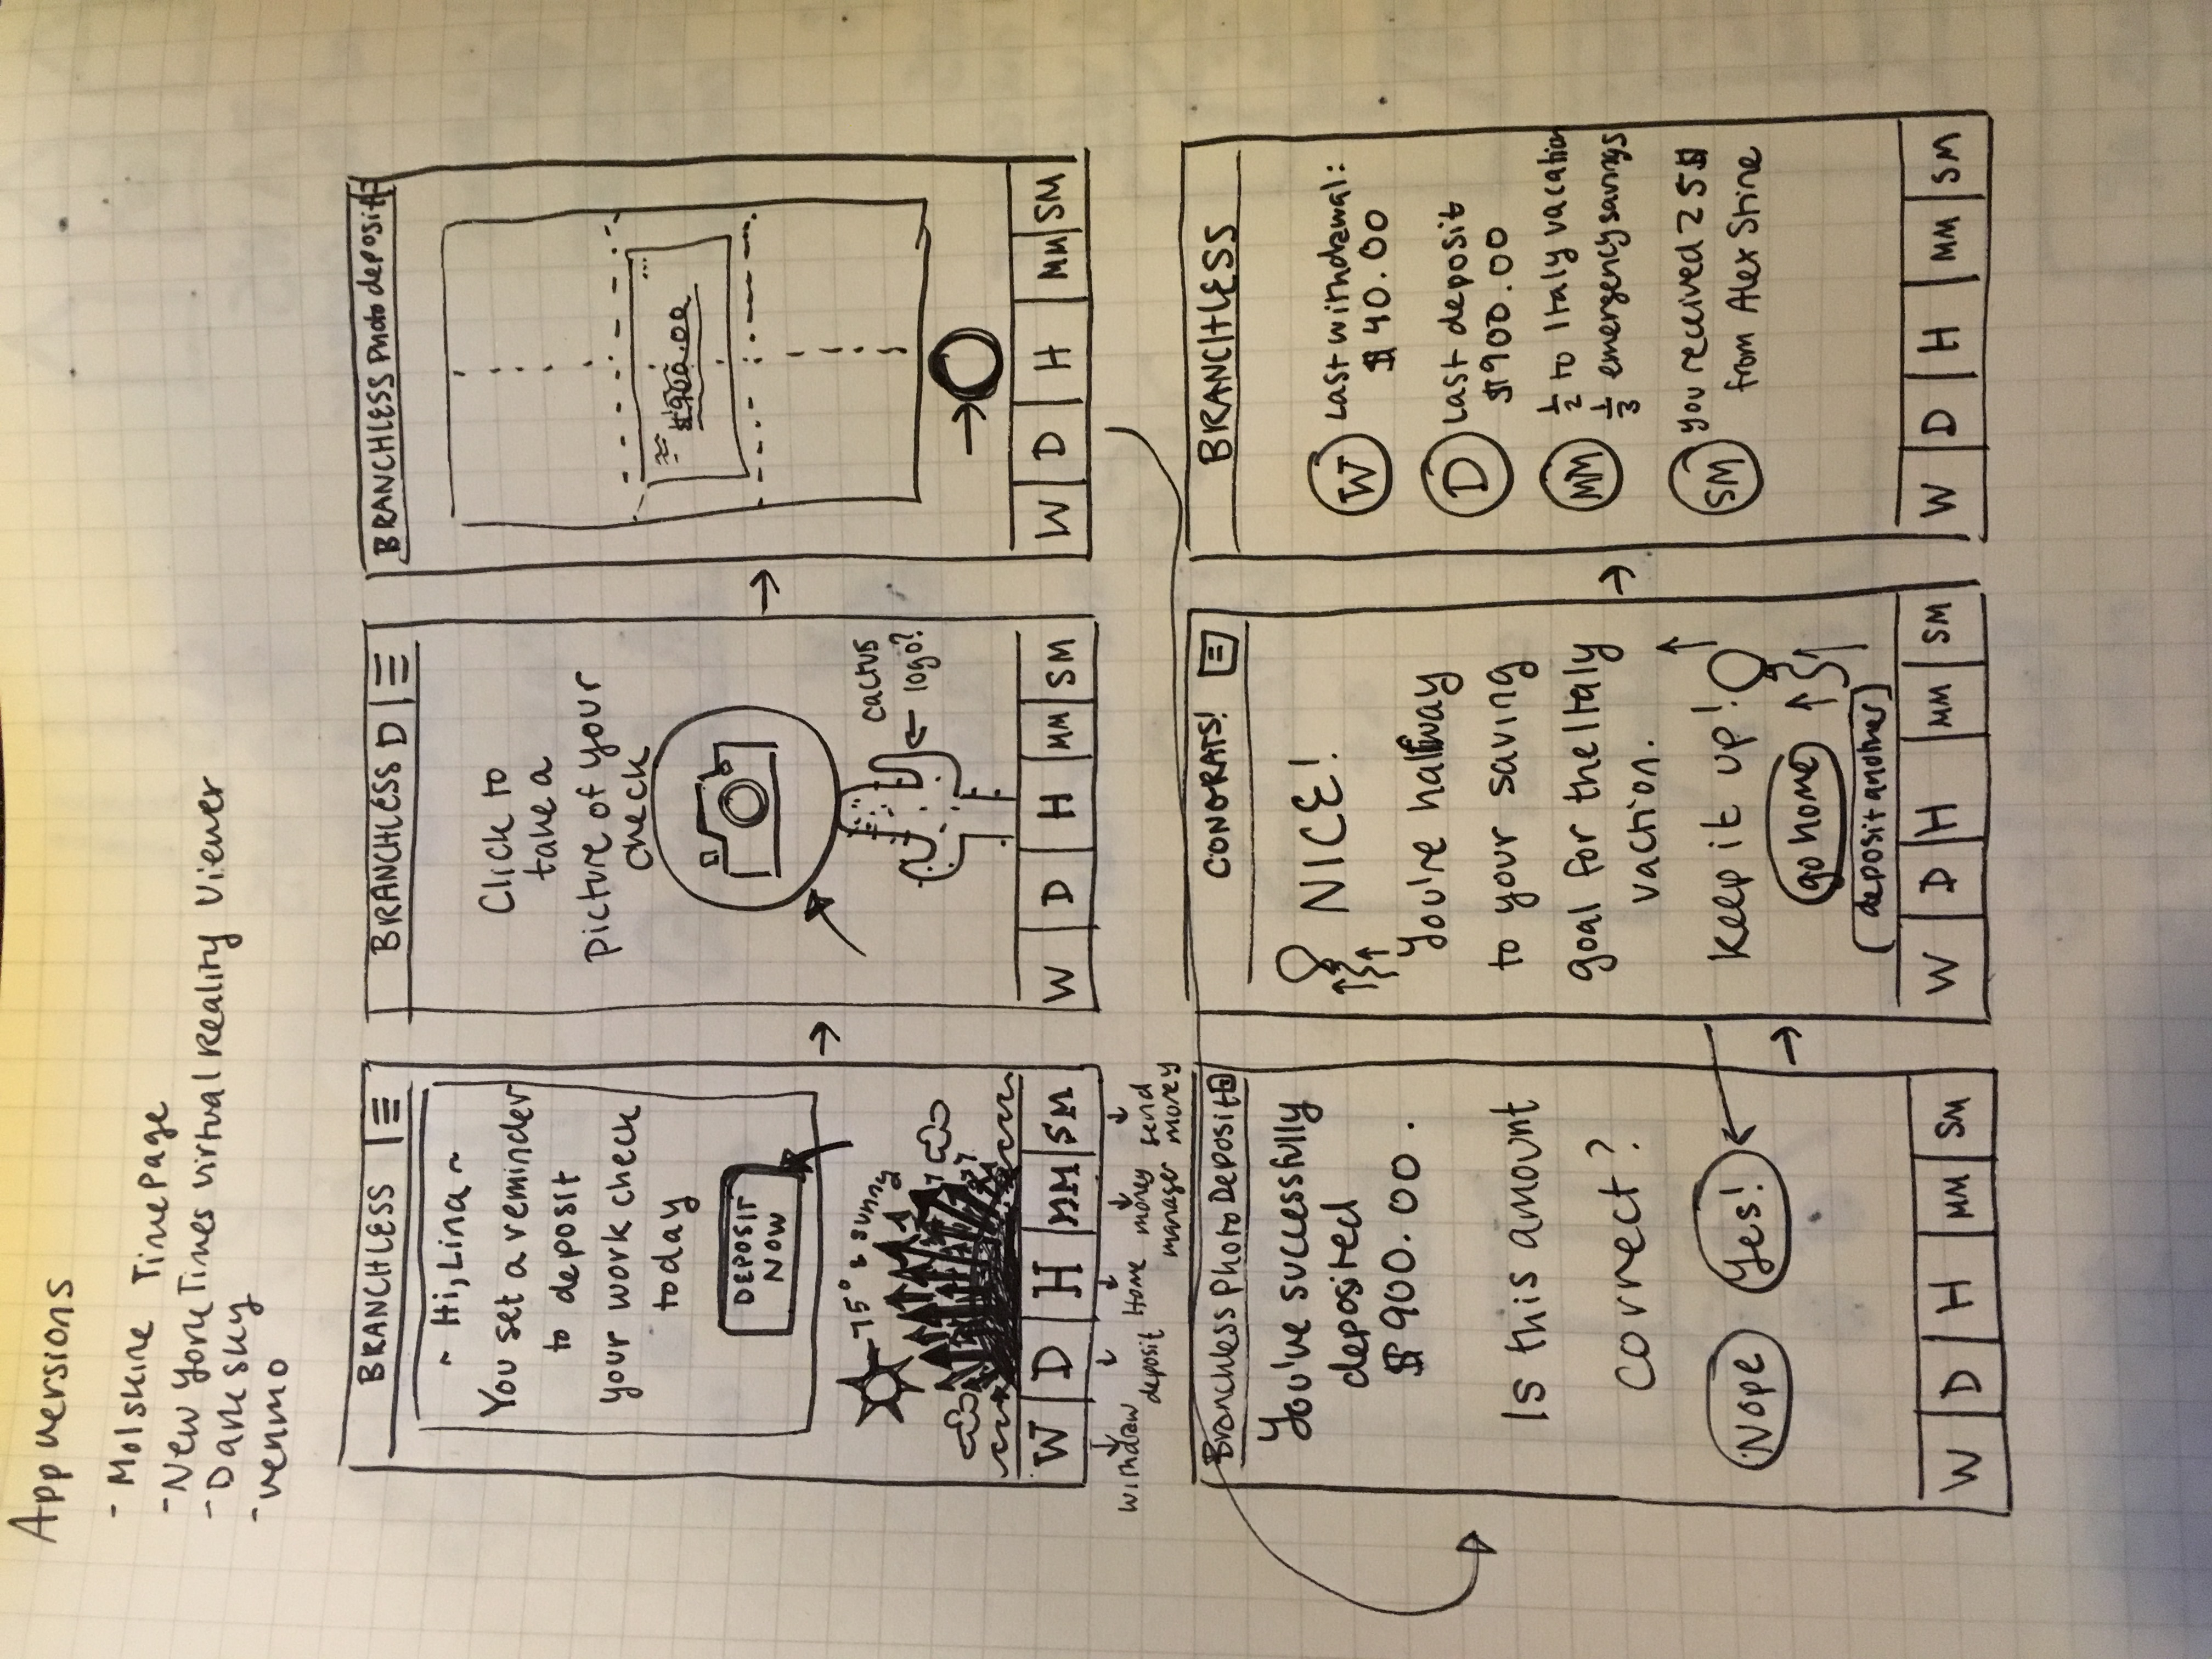 App versions
- Molskine TimePage
- New York Times Virtual Reality Viewer
- Dark sky
- venmo
BRANCHLESS
~ Hi, Lina ~
You set a reminder
to deposit
your work check
today
DEPOSIT
NOW
75° & sunny
W D H MM SM
withdraw
deposit
Home
money
manager
send
money
BRANCHLESS D
Click to
take a
picture of your
check
cactus
logo?
W D H MM SM
BRANCHLESS Photo deposit
$900.00
W D H MM SM
Branchless Photo Deposit
You've successfully
deposited
$900.00.
Is this amount
correct?
Nope Yes!
W D H MM SM
CONGRATS!
NICE!
You're halfway
to your saving
goal for the Italy
vaction.
Keep it up!
go home
[deposit another]
W D H MM SM
BRANCHLESS
W Last withdrawal:
$40.00
D Last deposit
$900.00
MM 1/2 to Italy vacation
1/3 emergency savings
SM You received 25$
from Alex Stine
W D H MM SM